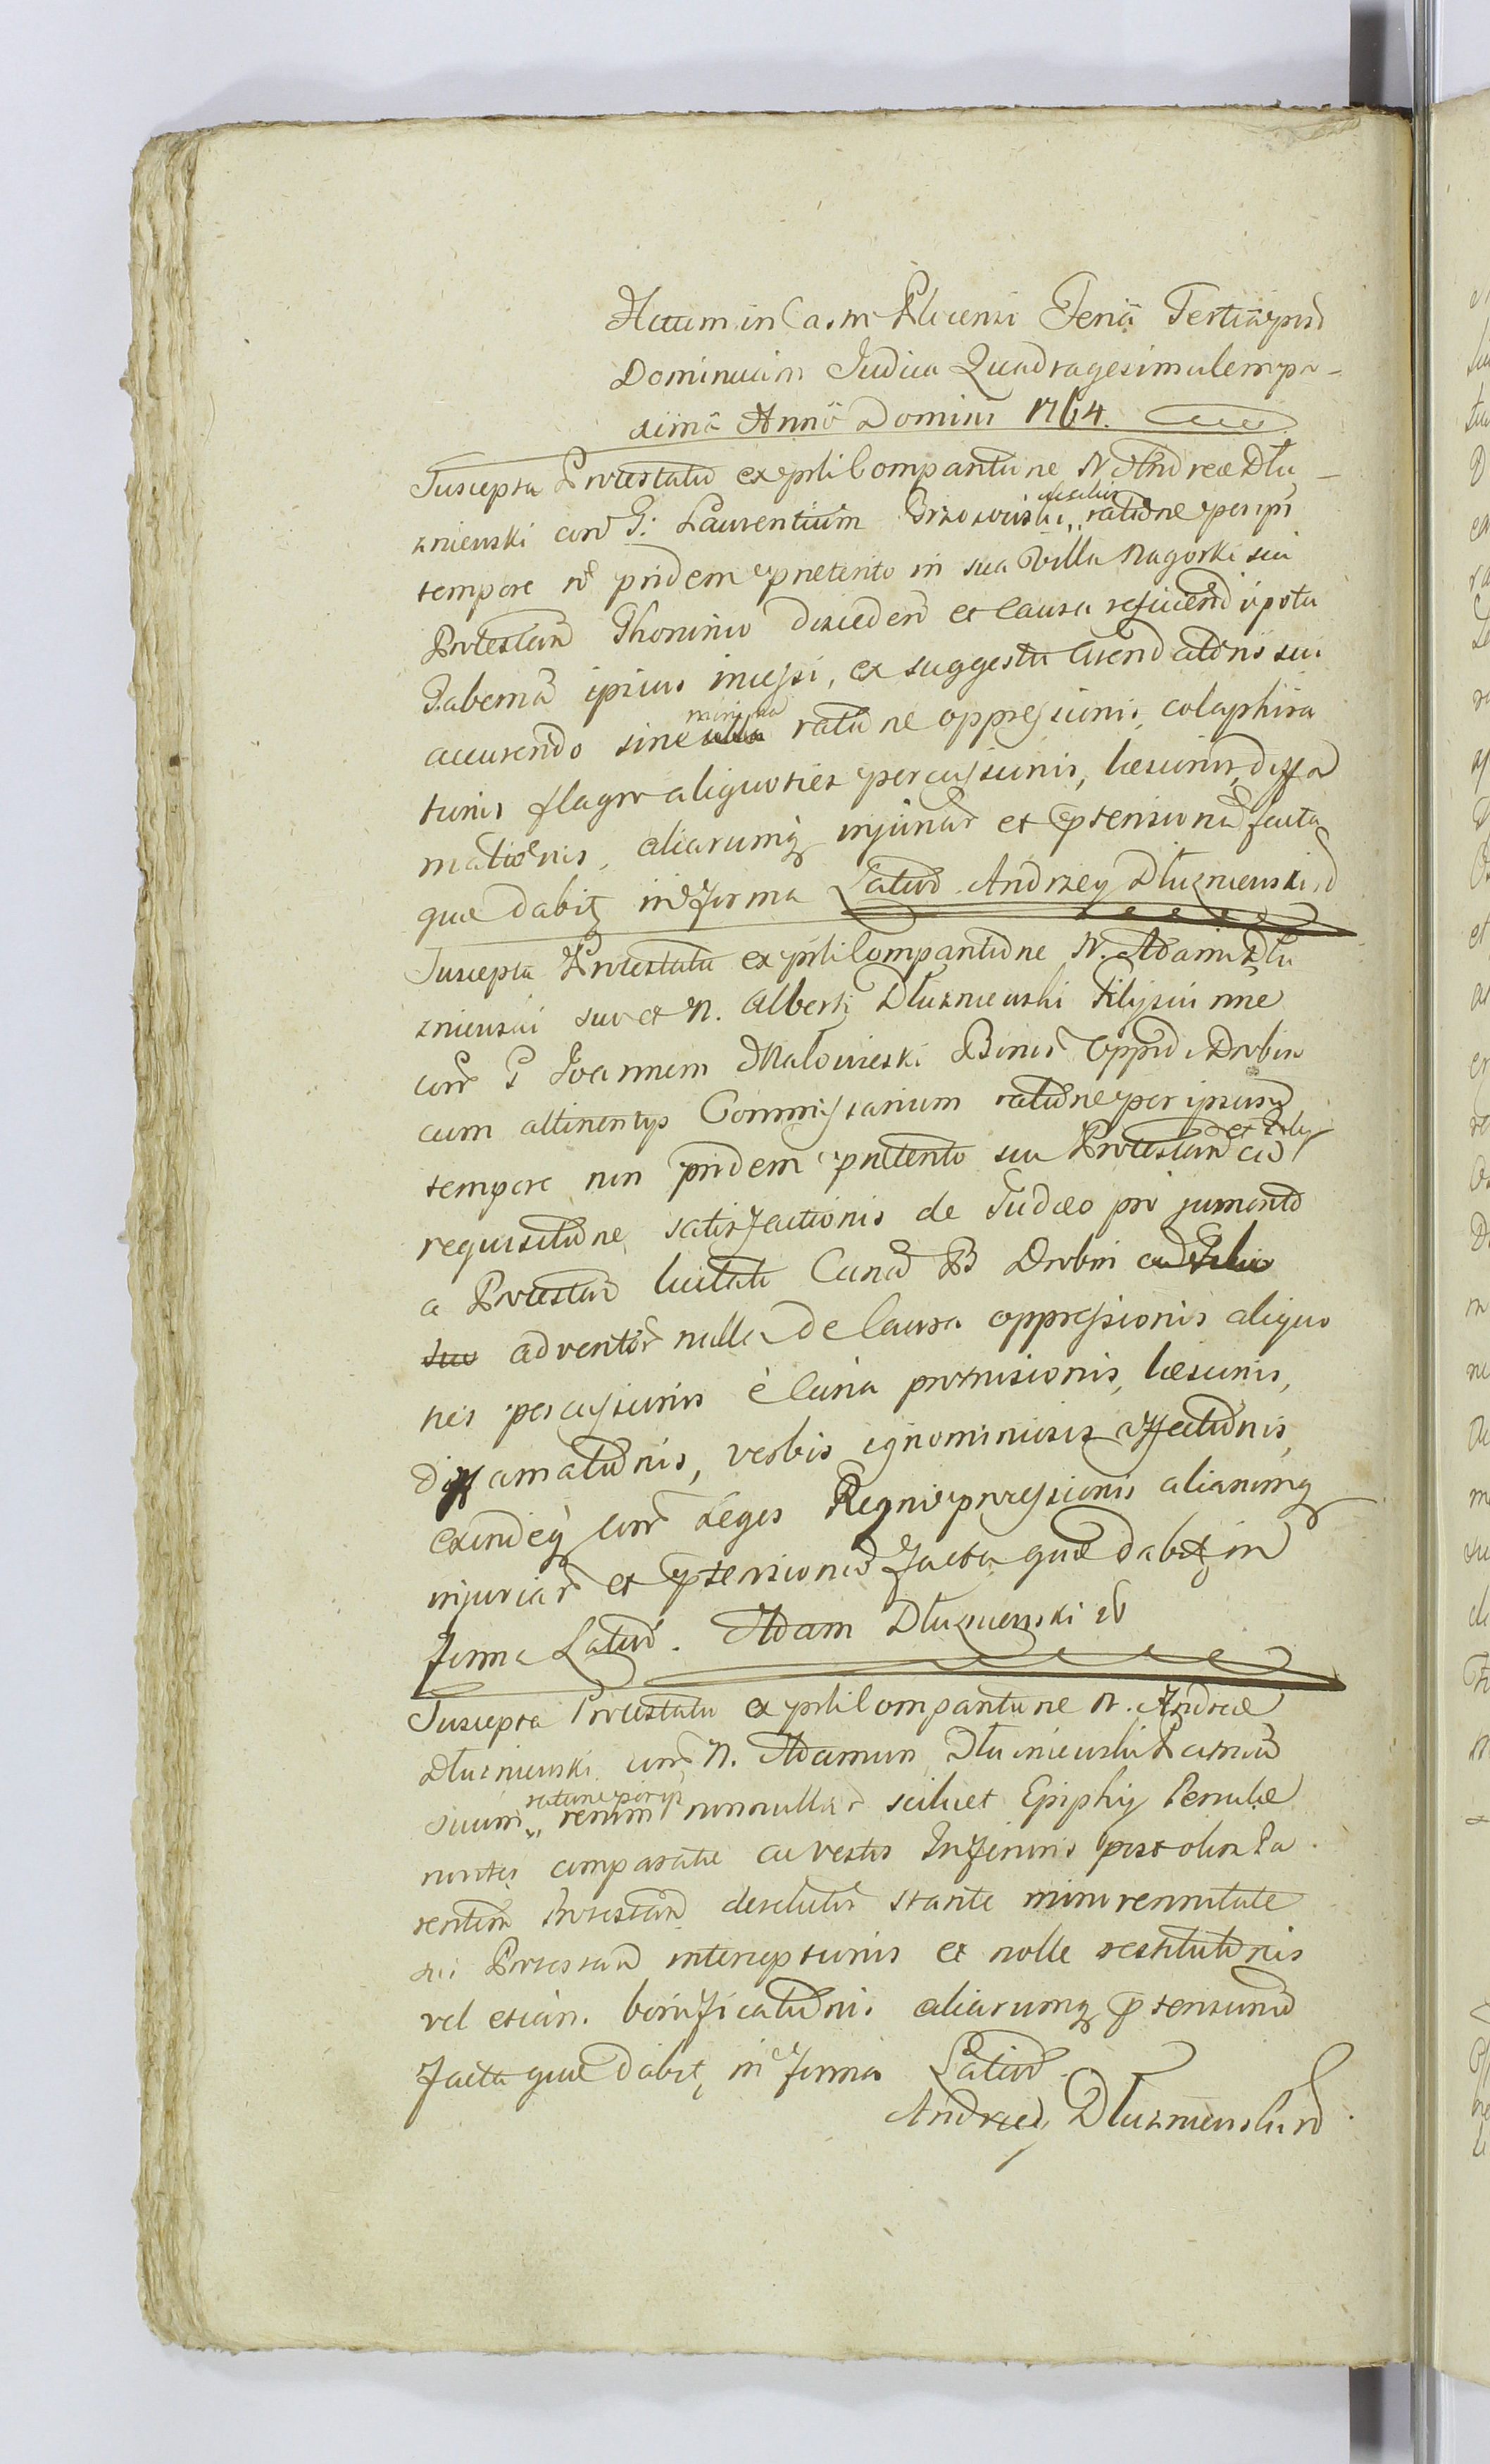 Actum in Castro Plocensi Feria Tertia post
Dominicam Judica Quadragesimalem pro-
xima Anno Domini 1764.
Suscepta Protestatio ex prsti Comparitione N. Andreae Dłu
zniewski con G: Laurentium Brzozowski ratione per ips
tempore no pridem praeterito in sua Villa Nagorki sui
Protestan Thorunio disceden et causa reficiend ipotu
Tabernam ipsius ingressi, ex suggestu Arendatoris sui
accurendo sine ulla minima ratione oppressionis, colaphiza
tionis flagro aliquoties percussionis, laesionis, diffa
mationis, aliarumq injuriar et ptensionu facta
quae dabit in forma Latior. Andrzey Dłuzniewski
Suscepta Protestatio ex prsti Comparitione N. Adami Dłu
zniewski suo et N. Alberti Dłuzniewski Filij sui nne
con G Joannem Małowieski Bonor Oppidi Drobin
cum attinentys Commissarium ratione per ipsum
tempore non pridem praeterito sui Protestan et Filij cu
requisitione satisfactionis de Judaeo pro jumento
a Protestan licitati Curia B Drobin cu Filio
suo adventor nulla de causa oppressionis aliquo
ties percussionis e Curia protrusionis, laesionis,
diffamationis, verbis ignominiosis affectionis,
exindeq con Leges Regni progressionis aliarumq
injuriar et ptensionu facta quae dabit in
forma Latior. Adam Dłuzniewski
Suscepta Protestatio ex prsti Comparitione N. Andreae
Dłuzniewski con N. Adamum Dłuzniewski Patruu
suum ratione per ips rerum nonnullar scilicet Ephipij Penulae
noviter comparatae ac vestis Inferioris post olim Pa
rentem Protestan derelictar stante minorennitate
sui Protestan interceptionis et nolle restitutionis
vel etiam bonificationis aliarumq ptensionu
facta quae dabit in forma Latior
Andrzey Dłuzniewski